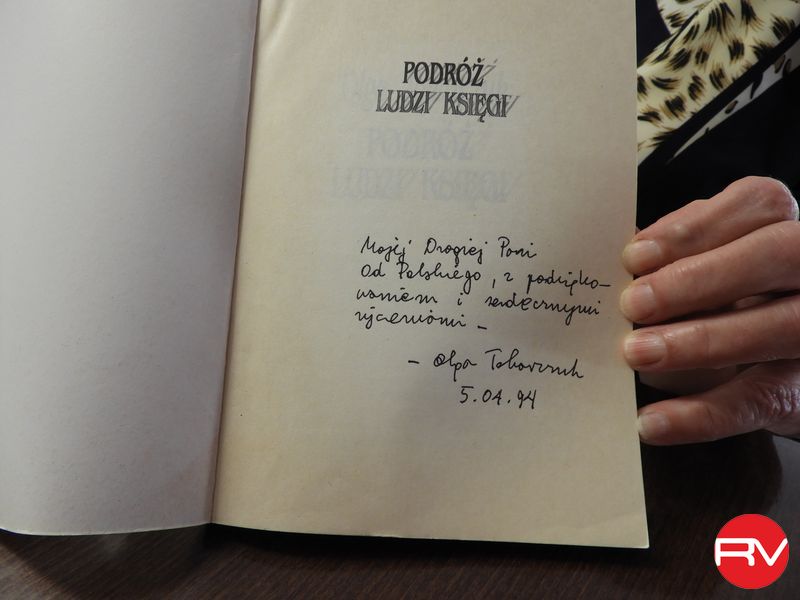 PODRÓŻ
LUDZI KSIĘGI
Mojej Drogiej Pani
Od Polskiego, z podzięko-
waniem i serdecznymi
życzeniami –
– Olga Tokarczuk
5.04.94
RV